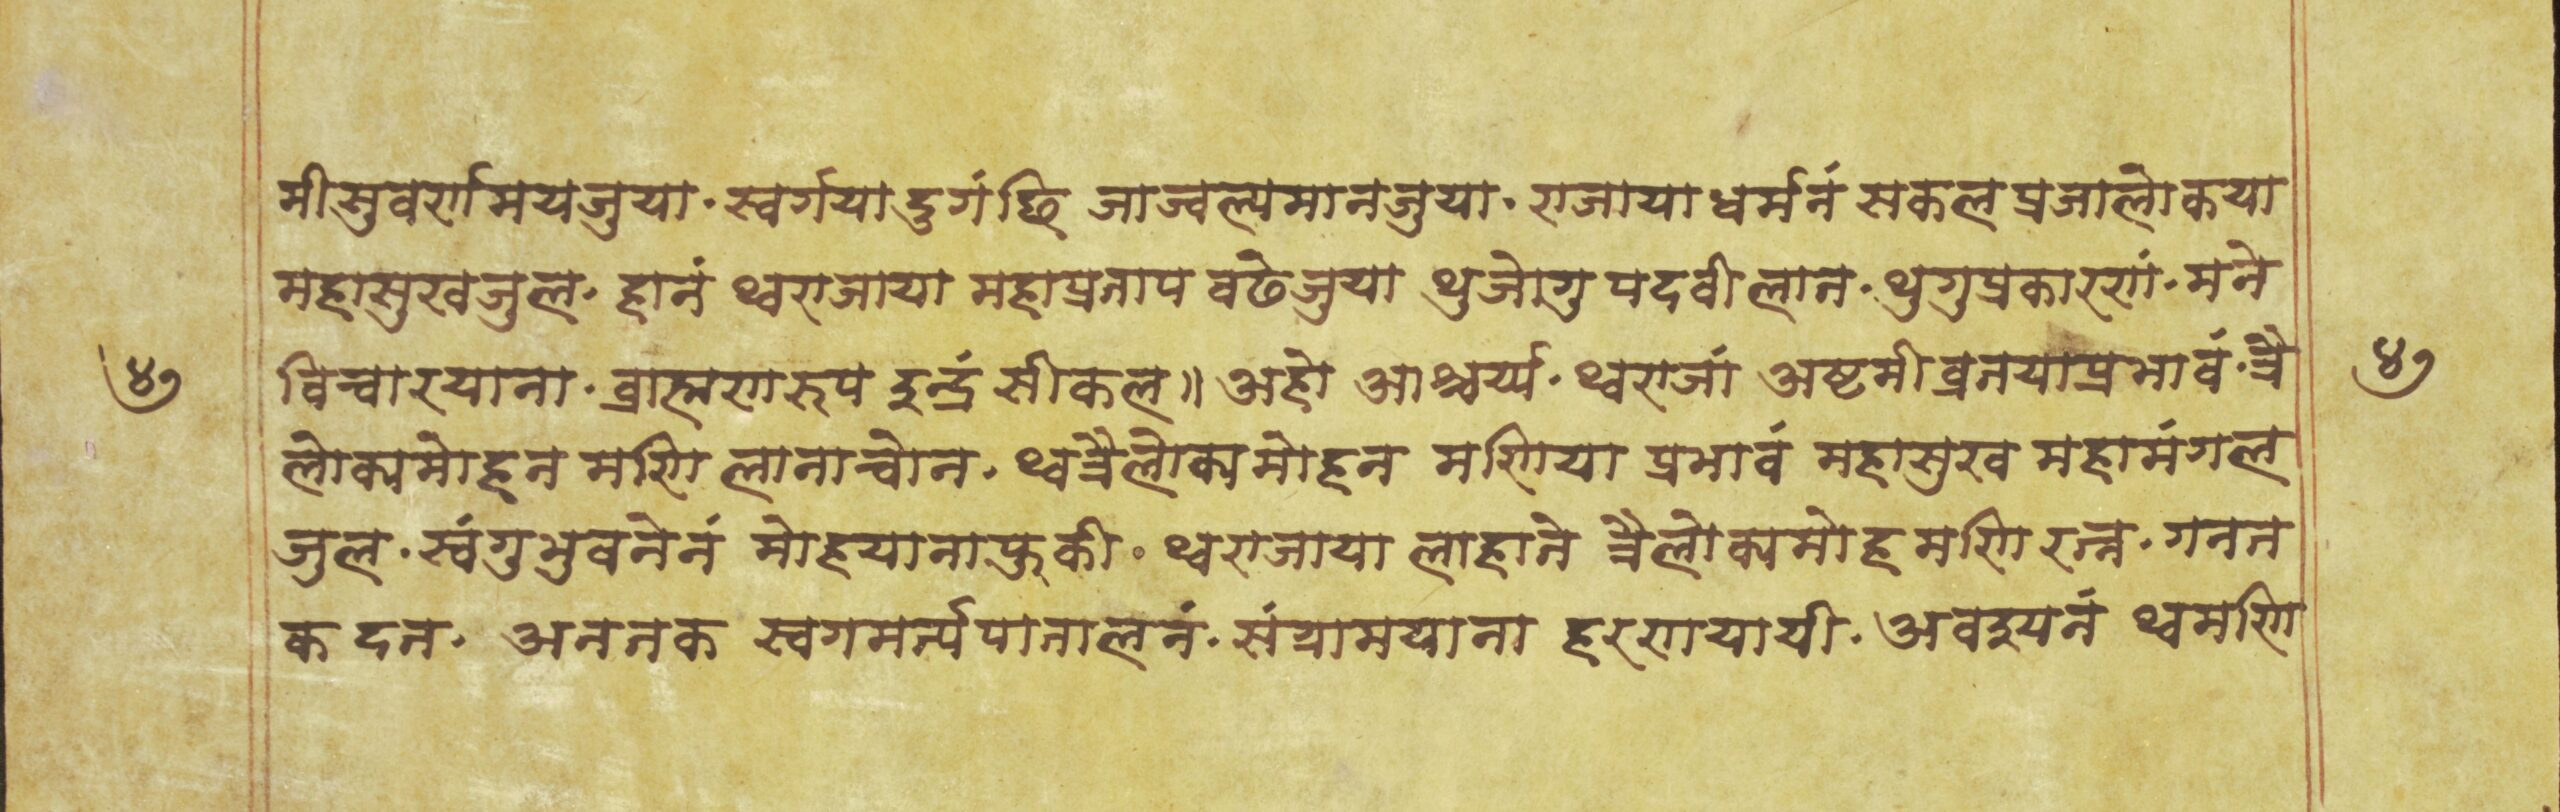 मी सुवर्णमयजुया. स्वर्गया दुगं छि जाज्वल्यमानजुया. राजाया धर्मनं सकल प्रजालोकया
महासुखजुल. हानं थ्वराजाया महाप्रताप वढेजुया थुजोगु पदवी लात. थुगुप्रकारणं. मने
४७ विचारयाना. ब्राह्मणरूप इन्द्रं सीकल॥ अहो आश्चर्य्य. थ्वराजां अष्टमीव्रतयाप्रभावं. त्रै ४७
लोक्यमोहन मणि लानाचोन. थ्वत्रैलोक्यमोहन मणिया प्रभावं महासुख महामंगल
जुल. स्वंगुभुवनेनं मोहयानाफुकी. थ्वराजाया लाहाते त्रैलोक्यमोहमणि रत्न. गनन
क दत. अननक स्वगमर्त्यपातालनं. संग्रामयाना हरणयायी. अवइयनं थ्वमणि